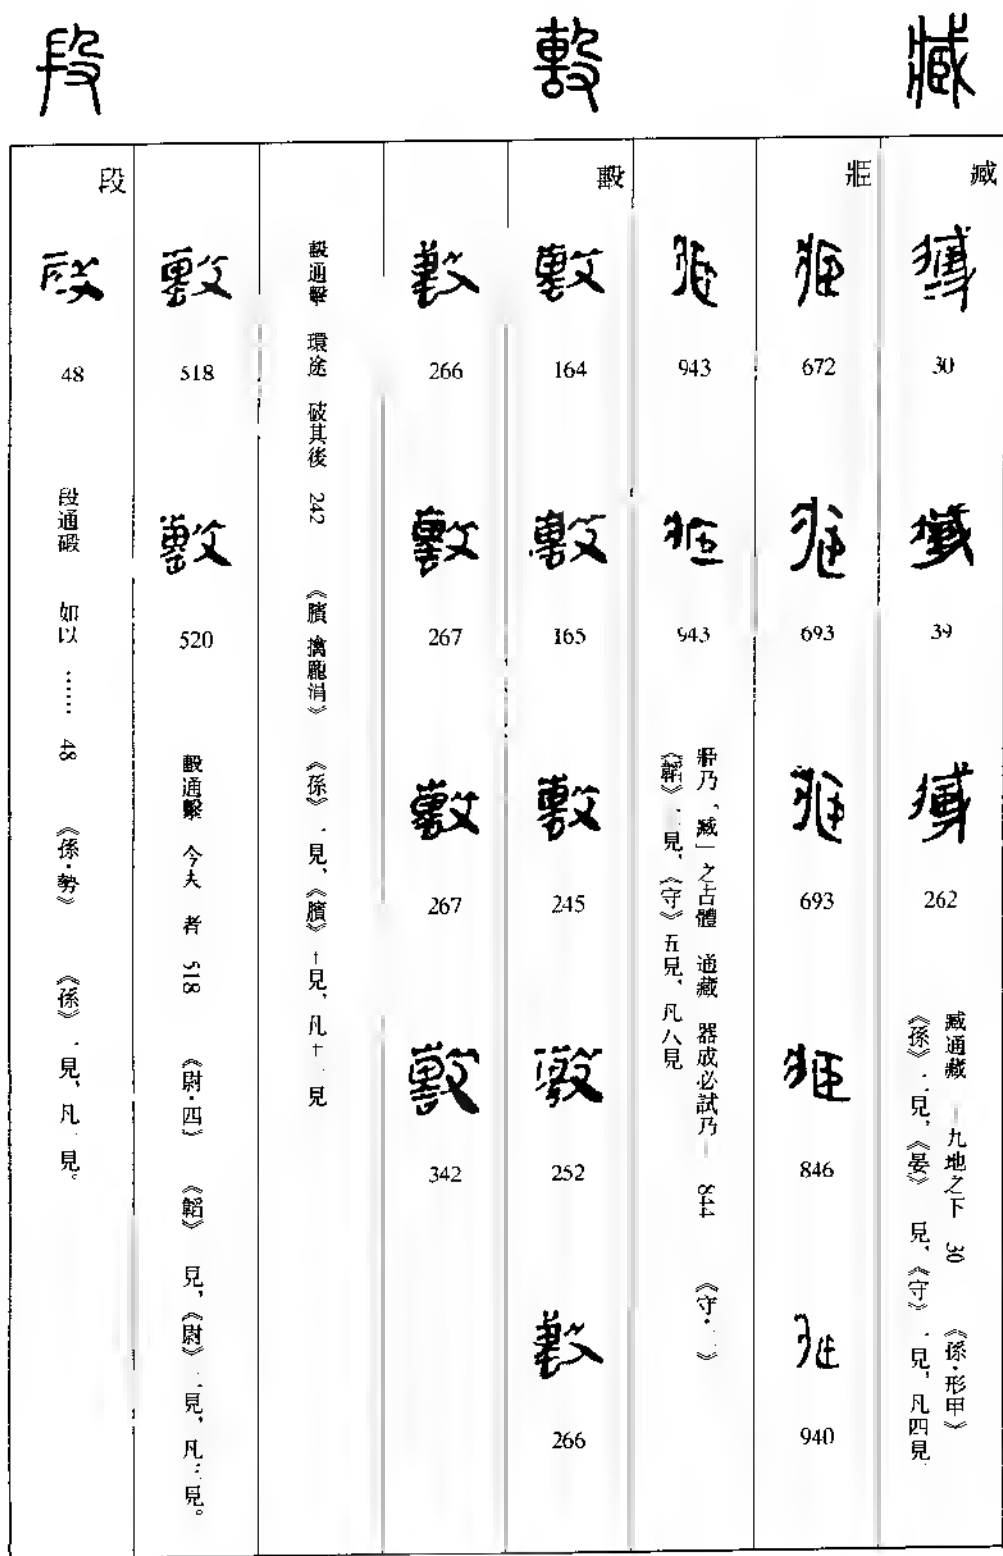 臧 毄 段
臧
30
39
262
臧通藏 九地之下 30 《孫·形甲》
《孫》二見,《晏》 見,《守》一見,凡四見
672
693
693
846
940
943
943
乃「臧」之古體 通藏 器成必試乃 844 《守·
見,《守》五見,凡八見
毄
164
165
245
252
266
266
267
267
342
毄通擊 環途 破其後 242 《臏·擒龐涓》 《孫》一見,《臏》十見,凡十一見
518
520
毄通擊 今夫 者 518 《尉·四》 《韜》 見,《尉》二見,凡三見。
段
48
段通碫 如以 …… 48 《孫·勢》 《孫》一見,凡一見。